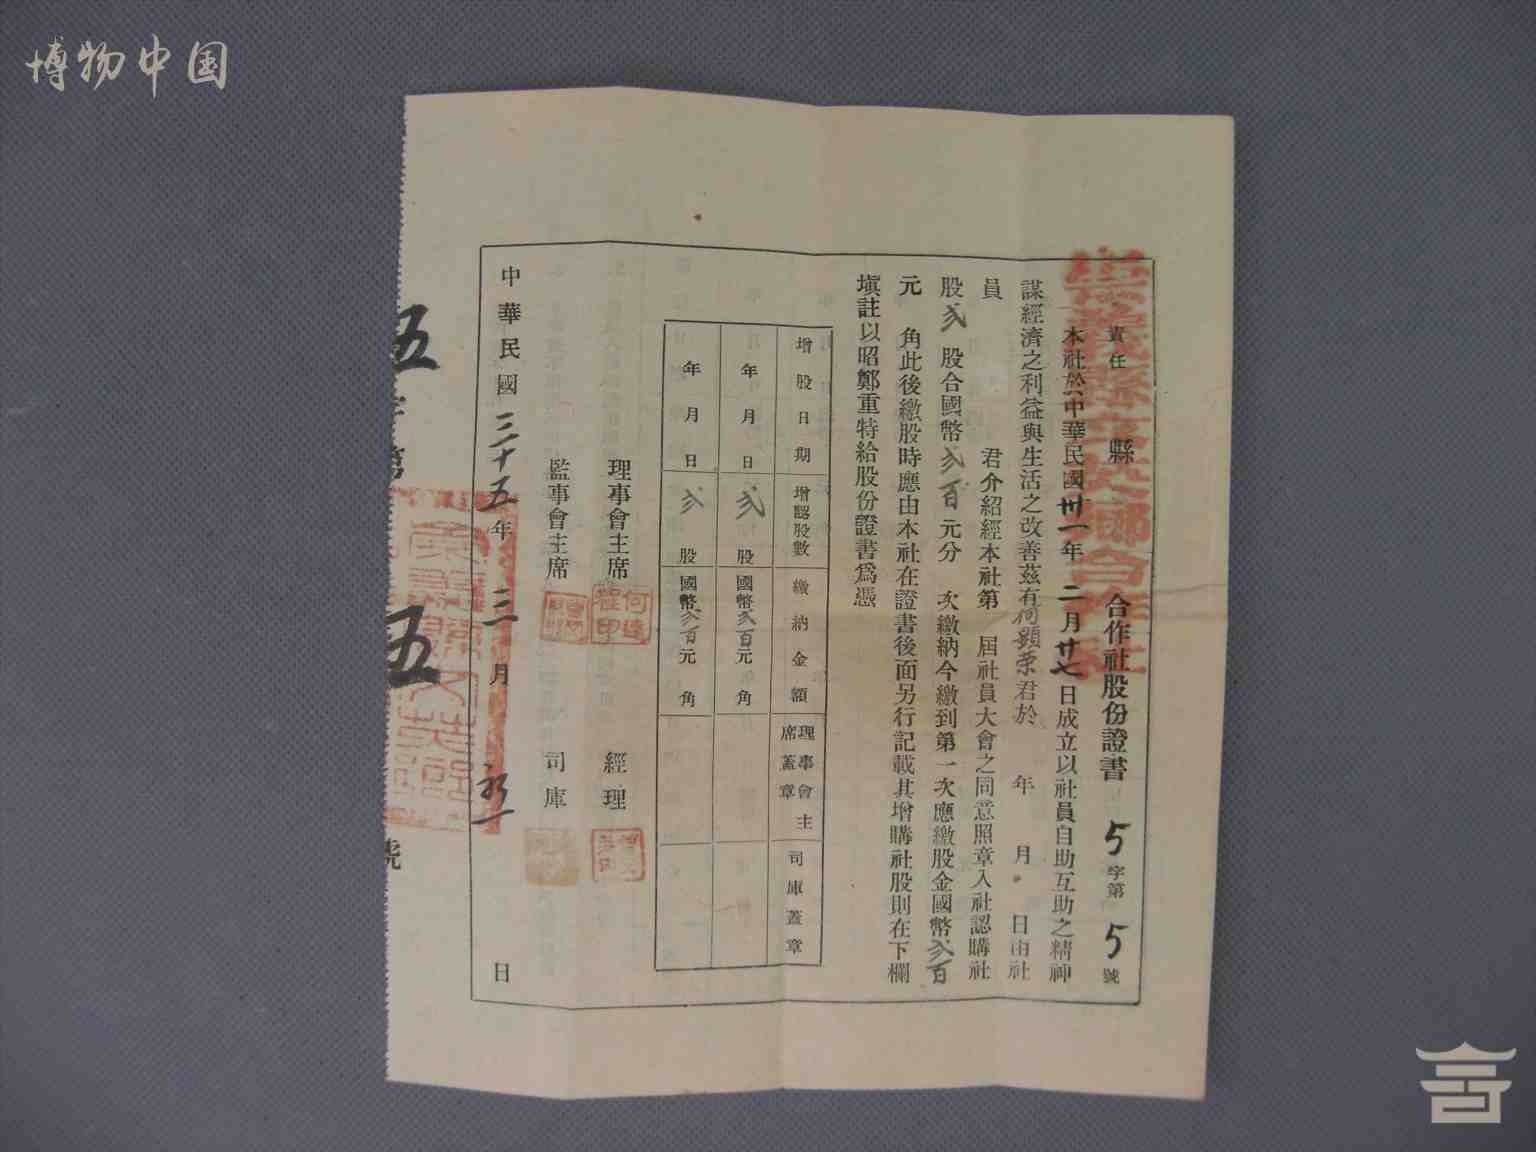 博物中国
責任 縣 合作社股份證書 5字第5號
本社於中華民國卅一年二月廿七日成立以社員自助互助之精神
謀經濟之利益與生活之改善茲有何顯荣君於 年 月 日由社
員 君介紹經本社第 屆社員大會之同意照章入社認購社
股弍 股合國幣弍百元分 次繳納今繳到第一次應繳股金國幣弍百
元 角此後繳股時應由本社在證書後面另行記載其增購社股則在下欄
塡註以昭鄭重特給股份證書爲憑
增股日期 增認股數 繳納金額 理事會主席蓋章 司庫蓋章
年 月 日 弍 股 國幣弍百元 角
年 月 日 弍 股 國幣弍百元 角
理事會主席 經理
監事會主席 司庫
中華民國三十五年三月 日
五字第 五 號